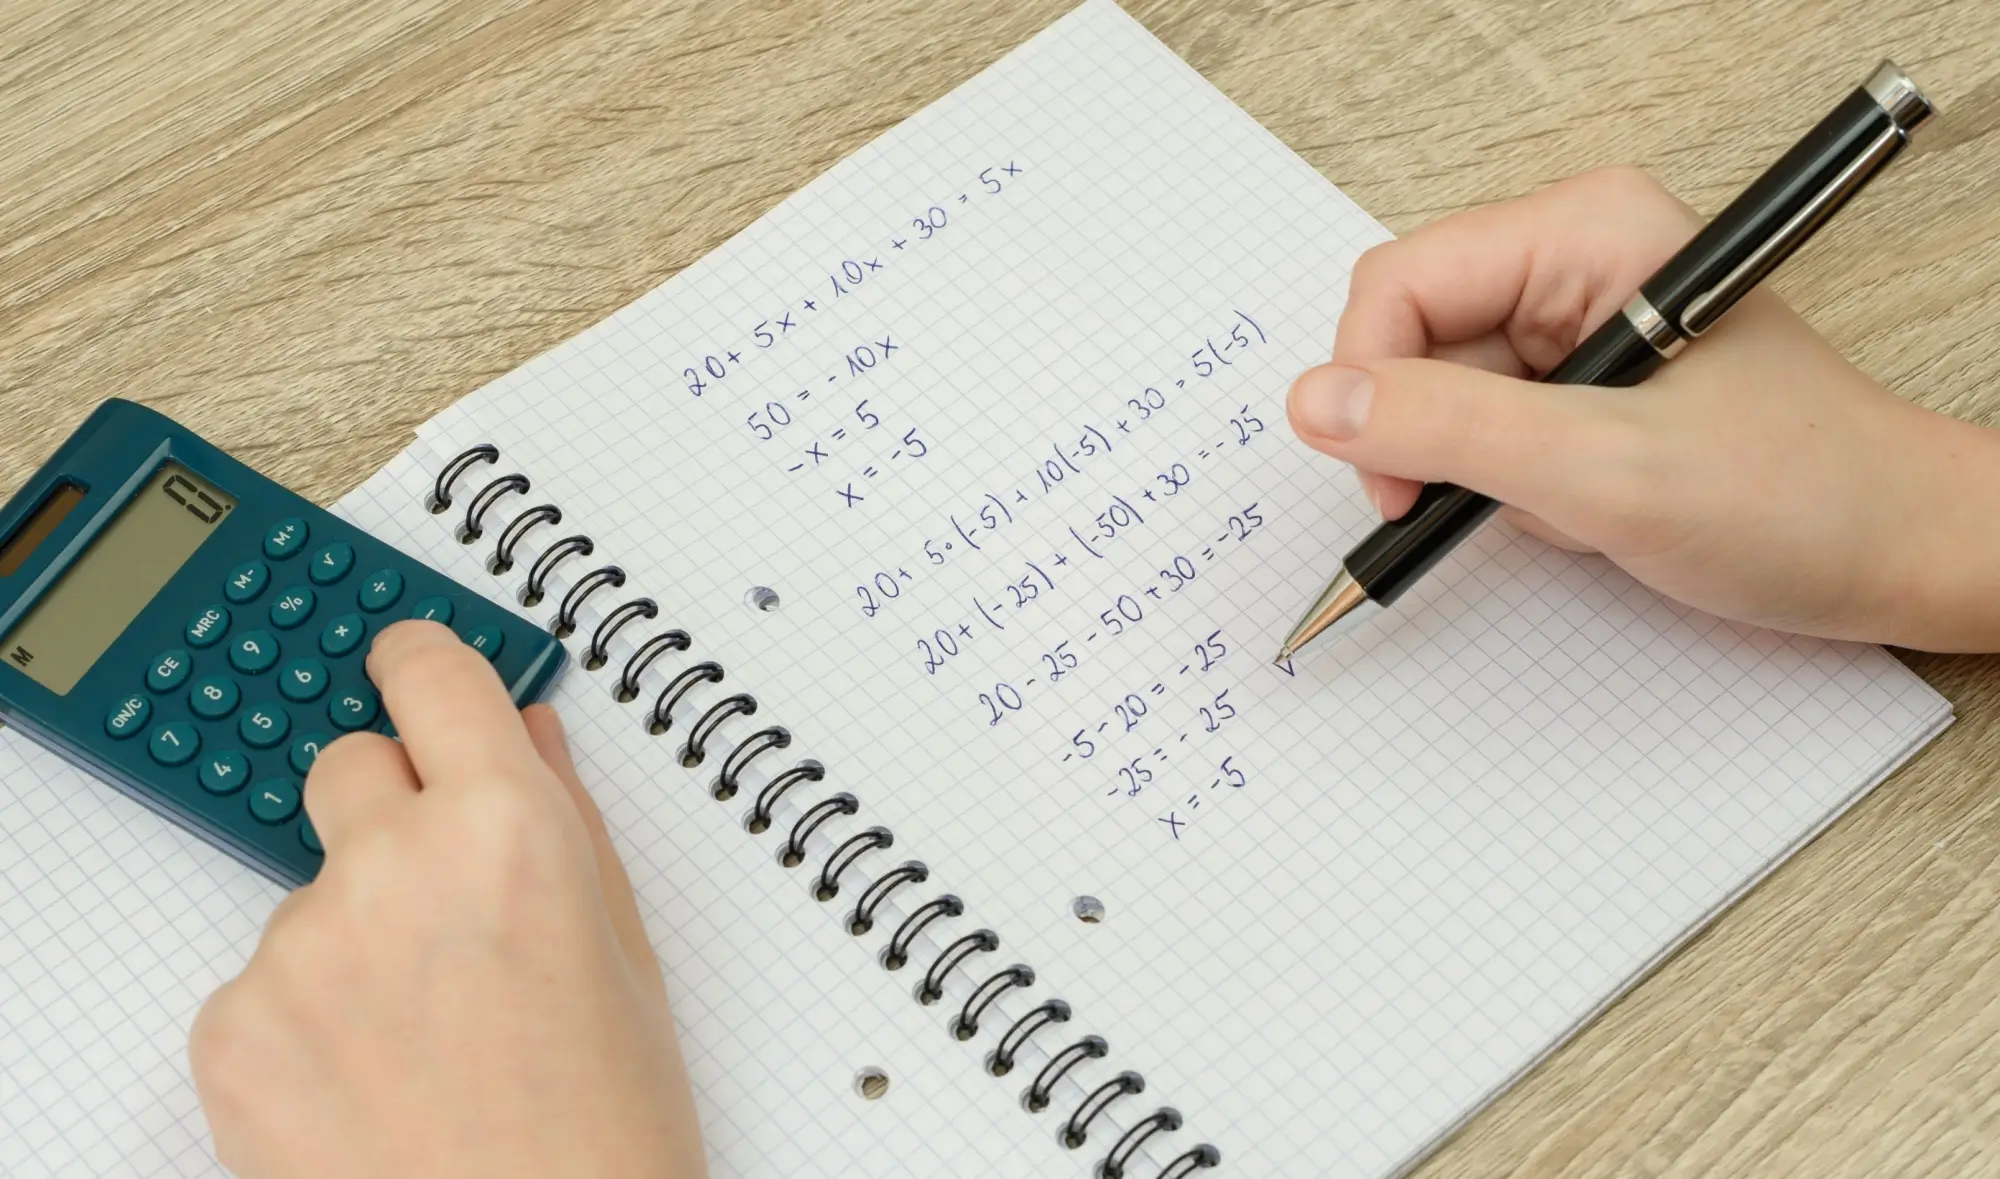 20 + 5x + 10x + 30 = 5x
50 = - 10x
-x = 5
x = -5
20 + 5·(-5) + 10(-5) + 30 = 5(-5)
20 + (-25) + (-50) + 30 = -25
20 - 25 - 50 + 30 = -25
-5 - 20 = -25
-25 = -25
x = -5
0.
M
M+
√
÷
-
=
M-
%
×
MRC
9
6
3
CE
8
5
2
ON/C
7
4
1